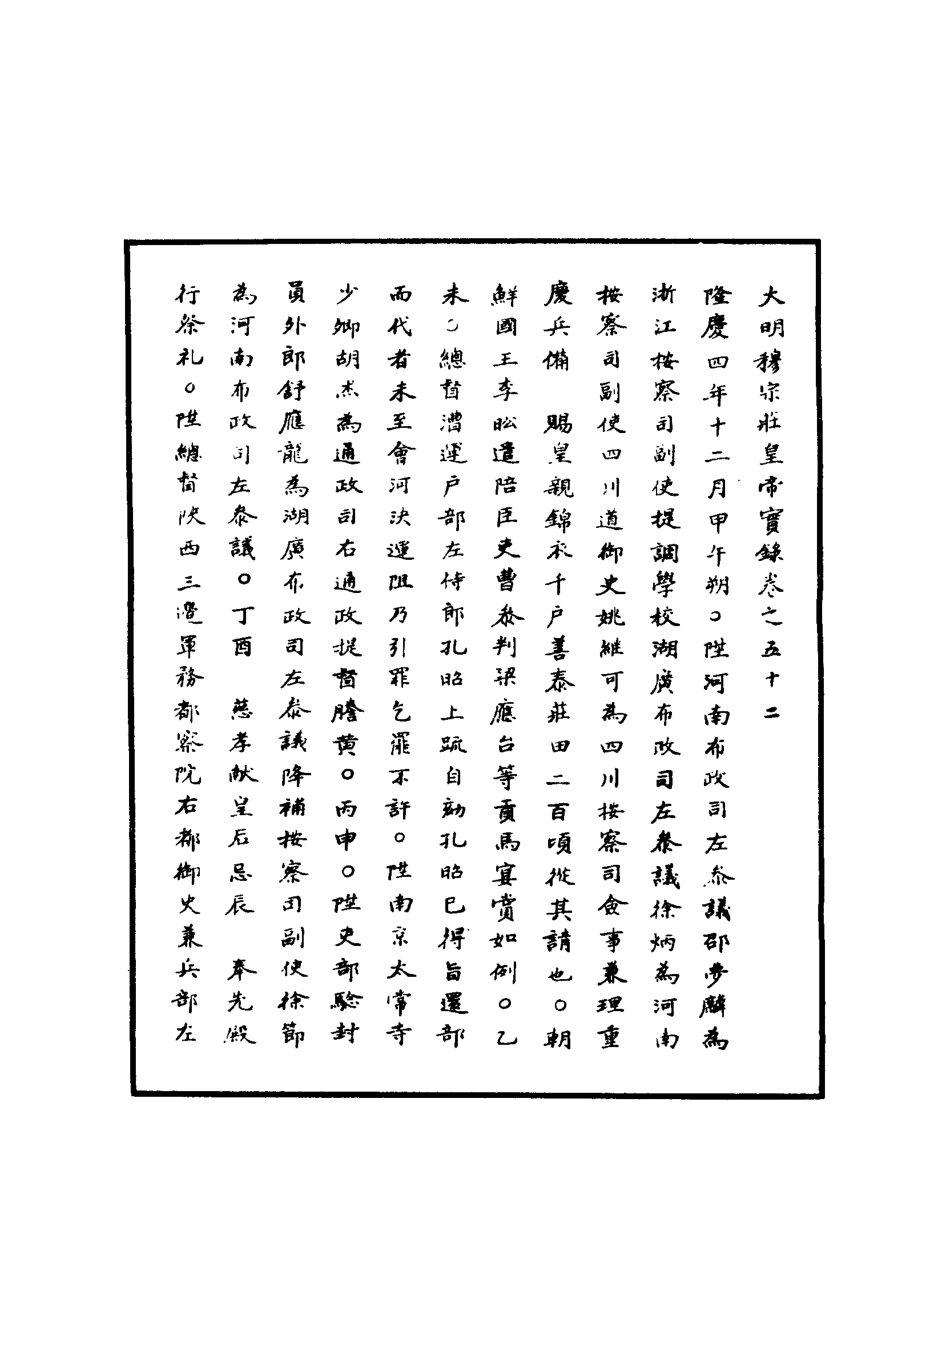 大明穆宗莊皇帝實錄卷之五十二
隆慶四年十二月甲午朔○陞河南布政司左叅議邵夢麟為
浙江按察司副使提調學校湖廣布政司左叅議徐炳為河南
按察司副使四川道御史姚繼可為四川按察司僉事兼理重
慶兵備　賜皇親錦衣千戶善泰莊田二百頃從其請也○朝
鮮國王李昖遣陪臣吏曹叅判梁應台等貢馬宴賞如例○乙
未○總督漕運戶部左侍郎孔昭上疏自劾孔昭已得旨還部
而代者未至會河決運阻乃引罪乞罷不許○陞南京太常寺
少卿胡杰為通政司右通政提督謄黄○丙申○陞吏部驗封
員外郎舒應龍為湖廣布政司左叅議降補按察司副使徐節
為河南布政司左叅議○丁酉　慈孝献皇后忌辰　奉先殿
行祭礼○陞總督陜西三邊軍務都察院右都御史兼兵部左